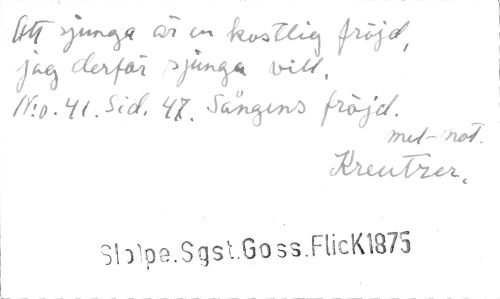 Att sjunga är en kostlig fröjd,
jag derför sjunga vill.
N:o. 41. Sid. 47. Sångens fröjd.
met-not.
Kreutzer.
Stolpe.Sgst.Goss.FlicK1875